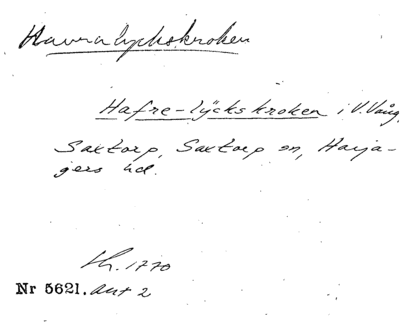 Havralyckskroken
Hafre-lÿckskroken i V. Vång,
Saxtorp, Saxtorp sn, Harja-
gers hd.
Lh. 1770
Nr 5621. akt 2